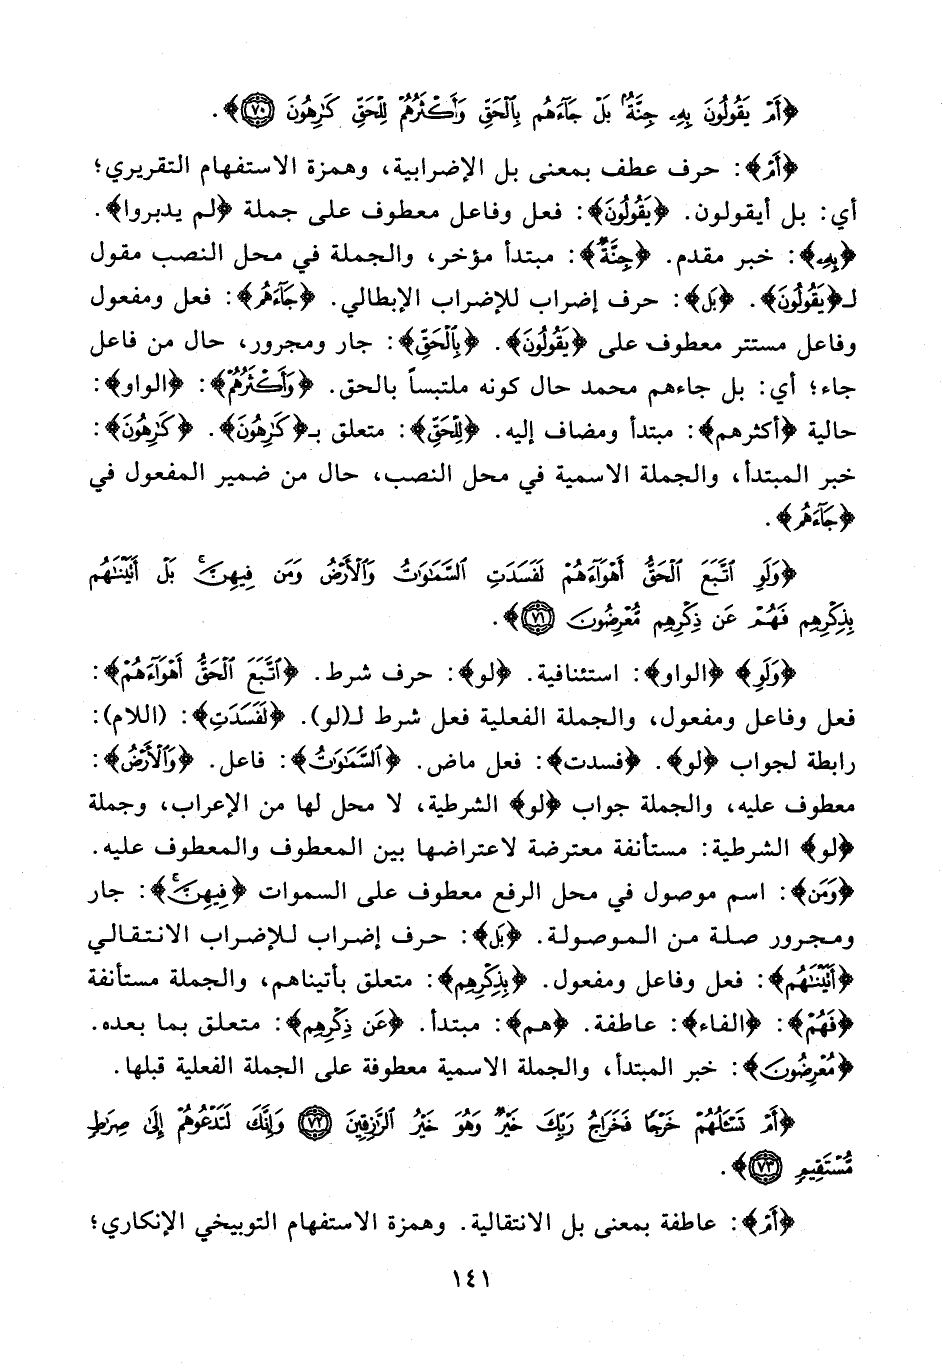 ﴿أَمْ يَقُولُونَ بِهِۦ جِنَّةٌۢ ۚ بَلْ جَآءَهُم بِٱلْحَقِّ وَأَكْثَرُهُمْ لِلْحَقِّ كَٰرِهُونَ ٧٠﴾.
﴿أَمْ﴾: حرف عطف بمعنى بل الإضرابية، وهمزة الاستفهام التقريري؛
أي: بل أيقولون. ﴿يَقُولُونَ﴾: فعل وفاعل معطوف على جملة ﴿لم يدبروا﴾.
﴿بِهِۦ﴾: خبر مقدم. ﴿جِنَّةٌۢ﴾: مبتدأ مؤخر، والجملة في محل النصب مقول
لـ﴿يَقُولُونَ﴾. ﴿بَلْ﴾: حرف إضراب للإضراب الإبطالي. ﴿جَآءَهُم﴾: فعل ومفعول
وفاعل مستتر معطوف على ﴿يَقُولُونَ﴾. ﴿بِٱلْحَقِّ﴾: جار ومجرور، حال من فاعل
جاء؛ أي: بل جاءهم محمد حال كونه ملتبساً بالحق. ﴿وَأَكْثَرُهُمْ﴾: ﴿الواو﴾:
حالية ﴿أكثرهم﴾: مبتدأ ومضاف إليه. ﴿لِلْحَقِّ﴾: متعلق بـ﴿كَٰرِهُونَ﴾. ﴿كَٰرِهُونَ﴾:
خبر المبتدأ، والجملة الاسمية في محل النصب، حال من ضمير المفعول في
﴿جَآءَهُم﴾.
﴿وَلَوِ ٱتَّبَعَ ٱلْحَقُّ أَهْوَآءَهُمْ لَفَسَدَتِ ٱلسَّمَٰوَٰتُ وَٱلْأَرْضُ وَمَن فِيهِنَّ ۚ بَلْ أَتَيْنَٰهُم
بِذِكْرِهِمْ فَهُمْ عَن ذِكْرِهِم مُّعْرِضُونَ ٧١﴾.
﴿وَلَوِ﴾ ﴿الواو﴾: استئنافية. ﴿لو﴾: حرف شرط. ﴿ٱتَّبَعَ ٱلْحَقُّ أَهْوَآءَهُمْ﴾:
فعل وفاعل ومفعول، والجملة الفعلية فعل شرط لـ(لو). ﴿لَفَسَدَتِ﴾: (اللام):
رابطة لجواب ﴿لو﴾. ﴿فسدت﴾: فعل ماض. ﴿ٱلسَّمَٰوَٰتُ﴾: فاعل. ﴿وَٱلْأَرْضُ﴾:
معطوف عليه، والجملة جواب ﴿لو﴾ الشرطية، لا محل لها من الإعراب، وجملة
﴿لو﴾ الشرطية: مستأنفة معترضة لاعتراضها بين المعطوف والمعطوف عليه.
﴿وَمَن﴾: اسم موصول في محل الرفع معطوف على السموات ﴿فِيهِنَّ ۚ﴾: جار
ومجرور صلة من الموصولة. ﴿بَلْ﴾: حرف إضراب للإضراب الانتقالي
﴿أَتَيْنَٰهُم﴾: فعل وفاعل ومفعول. ﴿بِذِكْرِهِمْ﴾: متعلق بأتيناهم، والجملة مستأنفة
﴿فَهُمْ﴾: ﴿الفاء﴾: عاطفة. ﴿هم﴾: مبتدأ. ﴿عَن ذِكْرِهِم﴾: متعلق بما بعده.
﴿مُّعْرِضُونَ﴾: خبر المبتدأ، والجملة الاسمية معطوفة على الجملة الفعلية قبلها.
﴿أَمْ تَسْـَٔلُهُمْ خَرْجًا فَخَرَاجُ رَبِّكَ خَيْرٌ ۖ وَهُوَ خَيْرُ ٱلرَّٰزِقِينَ ٧٢ وَإِنَّكَ لَتَدْعُوهُمْ إِلَىٰ صِرَٰطٍ
مُّسْتَقِيمٍ ٧٣﴾.
﴿أَمْ﴾: عاطفة بمعنى بل الانتقالية. وهمزة الاستفهام التوبيخي الإنكاري؛
١٤١